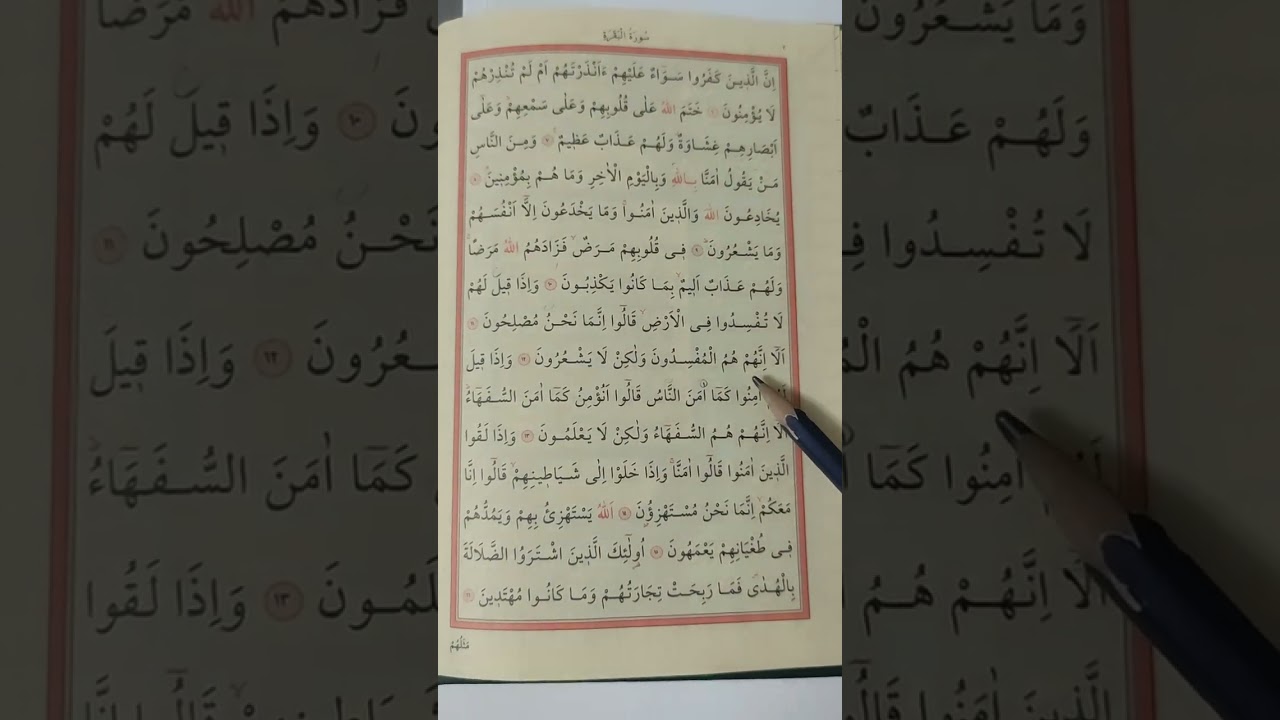 سُورَةُ الْبَقَرَةِ
٢
اِنَّ الَّذ۪ينَ كَفَرُوا سَوَٓاءٌ عَلَيْهِمْ ءَاَنْذَرْتَهُمْ اَمْ لَمْ تُنْذِرْهُمْ
لَا يُؤْمِنُونَ ﴿٦﴾ خَتَمَ اللّٰهُ عَلٰى قُلُوبِهِمْ وَعَلٰى سَمْعِهِمْۜ وَعَلٰٓى
اَبْصَارِهِمْ غِشَاوَةٌۘ وَلَهُمْ عَذَابٌ عَظ۪يمٌ۟ ﴿٧﴾ وَمِنَ النَّاسِ
مَنْ يَقُولُ اٰمَنَّا بِاللّٰهِ وَبِالْيَوْمِ الْاٰخِرِ وَمَا هُمْ بِمُؤْمِن۪ينَۘ ﴿٨﴾
يُخَادِعُونَ اللّٰهَ وَالَّذ۪ينَ اٰمَنُواۚ وَمَا يَخْدَعُونَ اِلَّٓا اَنْفُسَهُمْ
وَمَا يَشْعُرُونَۜ ﴿٩﴾ ف۪ي قُلُوبِهِمْ مَرَضٌۙ فَزَادَهُمُ اللّٰهُ مَرَضًاۚ
وَلَهُمْ عَذَابٌ اَل۪يمٌۙ بِمَا كَانُوا يَكْذِبُونَ ﴿١٠﴾ وَاِذَا ق۪يلَ لَهُمْ
لَا تُفْسِدُوا فِي الْاَرْضِۙ قَالُٓوا اِنَّمَا نَحْنُ مُصْلِحُونَ ﴿١١﴾
اَلَٓا اِنَّهُمْ هُمُ الْمُفْسِدُونَ وَلٰكِنْ لَا يَشْعُرُونَ ﴿١٢﴾ وَاِذَا ق۪يلَ
اٰمِنُوا كَمَٓا اٰمَنَ النَّاسُ قَالُٓوا اَنُؤْمِنُ كَمَٓا اٰمَنَ السُّفَهَٓاءُۜ
اَلَٓا اِنَّهُمْ هُمُ السُّفَهَٓاءُ وَلٰكِنْ لَا يَعْلَمُونَ ﴿١٣﴾ وَاِذَا لَقُوا
الَّذ۪ينَ اٰمَنُوا قَالُٓوا اٰمَنَّاۚ وَاِذَا خَلَوْا اِلٰى شَيَاط۪ينِهِمْۙ قَالُٓوا اِنَّا
مَعَكُمْۙ اِنَّمَا نَحْنُ مُسْتَهْزِؤُ۫نَ ﴿١٤﴾ اَللّٰهُ يَسْتَهْزِئُ بِهِمْ وَيَمُدُّهُمْ
ف۪ي طُغْيَانِهِمْ يَعْمَهُونَ ﴿١٥﴾ اُو۬لٰٓئِكَ الَّذ۪ينَ اشْتَرَوُا الضَّلَالَةَ
بِالْهُدٰىۖ فَمَا رَبِحَتْ تِجَارَتُهُمْ وَمَا كَانُوا مُهْتَد۪ينَ ﴿١٦﴾
مَثَلُهُمْ